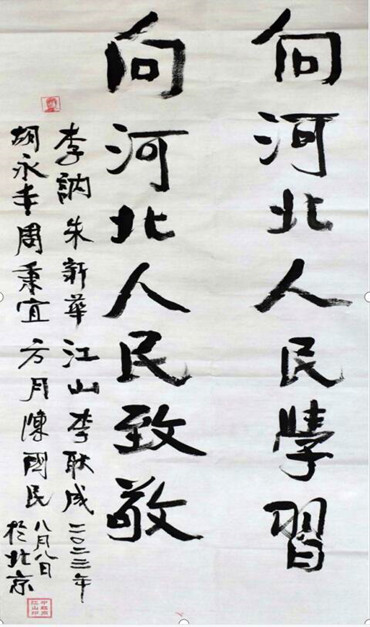 向河北人民學習
向河北人民致敬
李訥朱新華江山李耿成二〇二三年
胡永丰周秉宜方月陳國民八月八日
於北京